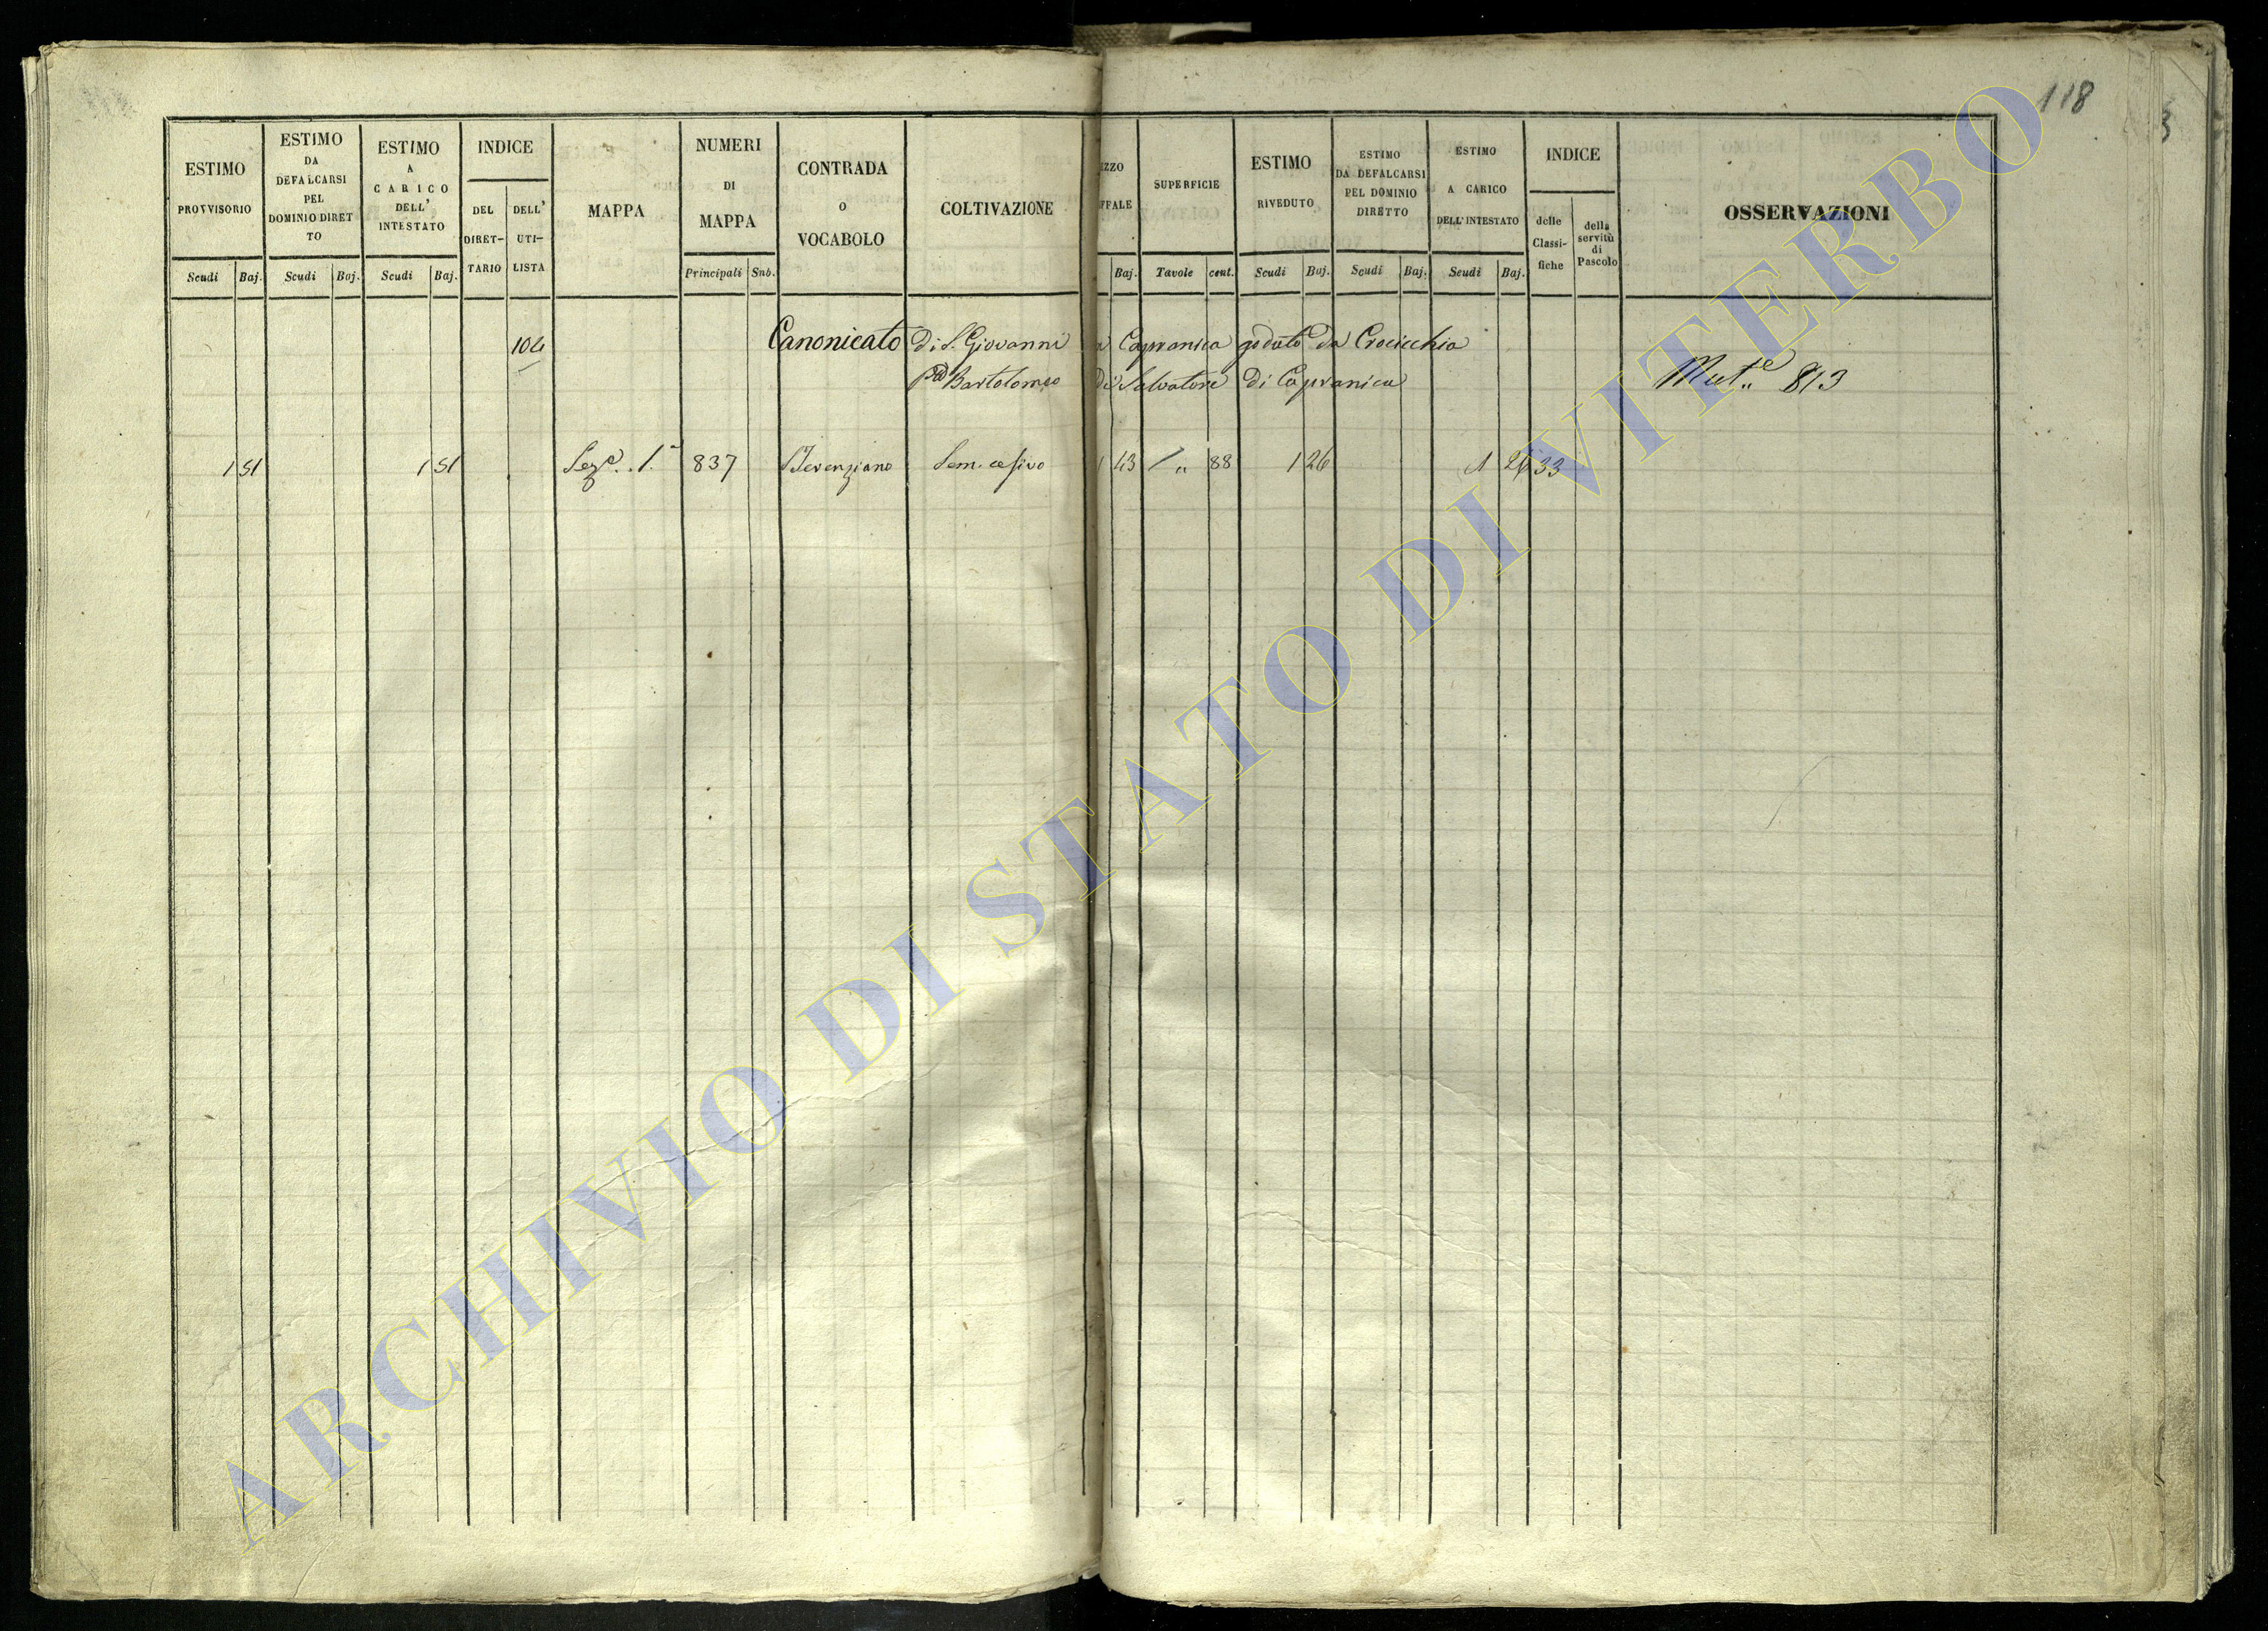 118
ESTIMO PROVVISORIO Scudi Baj.
ESTIMO DA DEFALCARSI PEL DOMINIO DIRET TO Scudi Baj.
ESTIMO A CARICO DELL' INTESTATO Scudi Baj.
INDICE DEL DIRET- TARIO DELL' UTI- LISTA
MAPPA
NUMERI DI MAPPA Principali Sub.
CONTRADA O VOCABOLO
COLTIVAZIONE
Baj.
SUPERFICIE Tavole cent.
ESTIMO RIVEDUTO Scudi Baj.
ESTIMO DA DEFALCARSI PEL DOMINIO DIRETTO Scudi Baj.
ESTIMO A CARICO DELL'INTESTATO Scudi Baj.
INDICE delle Classi- fiche della servitù di Pascolo
OSSERVAZIONI
104 Canonicato di S. Giovanni a Capranica goduto da Crocicchia
Bartolomeo di Salvatore di Capranica Mut.e 813
1 51 1 51 Sez.e 1.a 837 43 88 1 26 1 26 33
ARCHIVIO DI STATO DI VITERBO